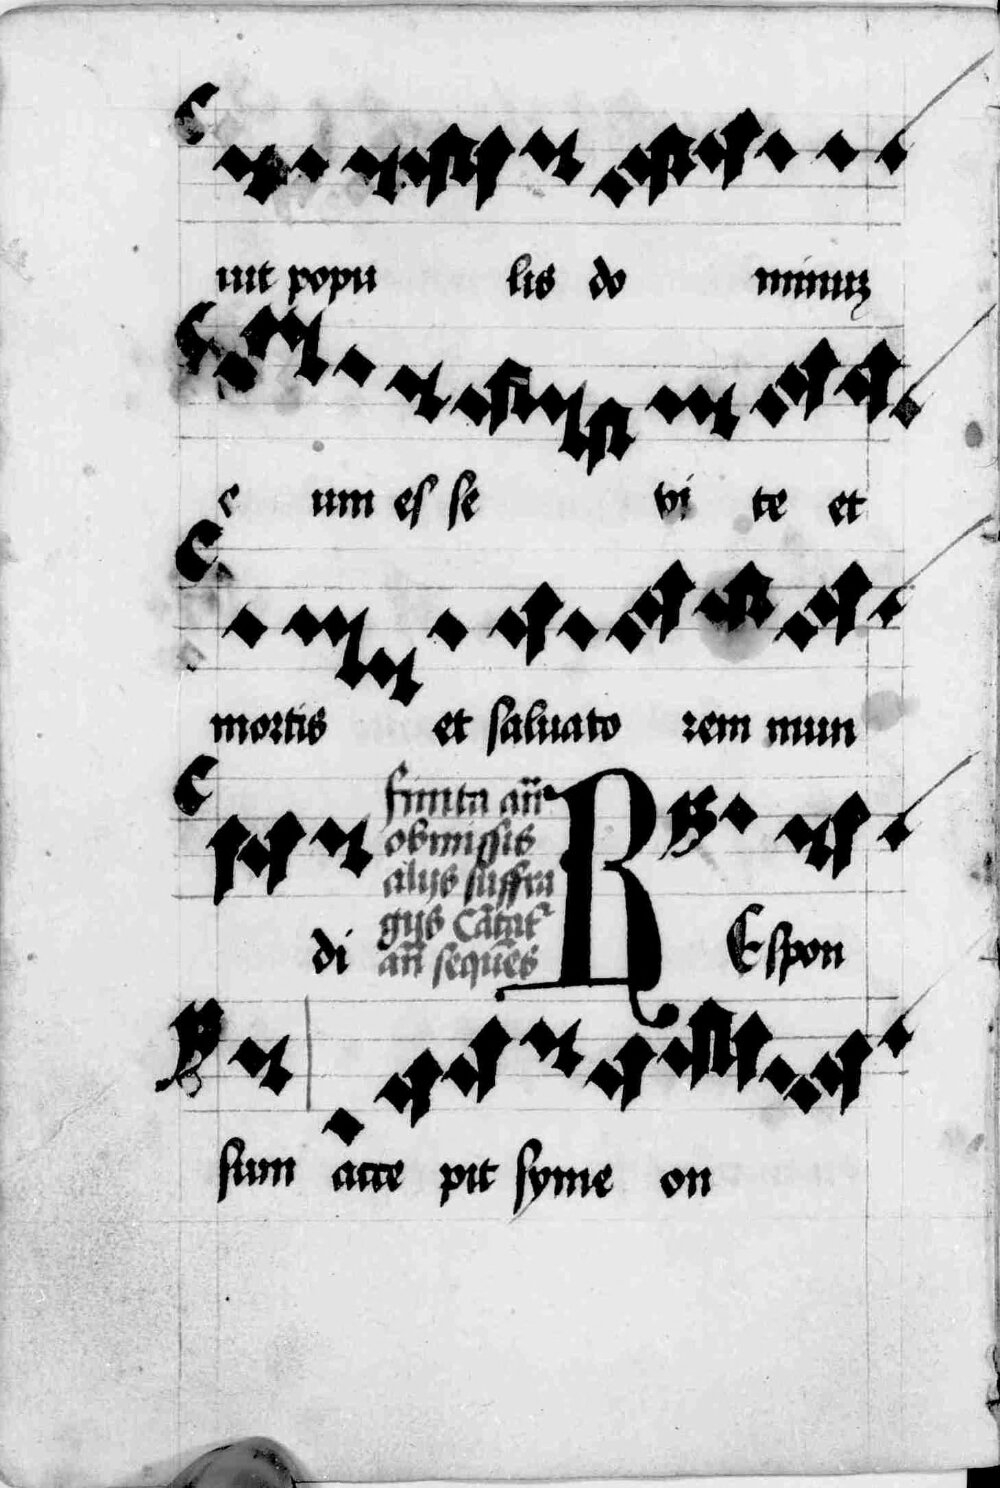 uit popu lis do minuz
e um es se vi te et
mortis et saluato rem mun
finita an̄
obmissis
alijs suffra
gijs Cātat᷑
an̄ sequēs
di REspon
sum acce pit syme on